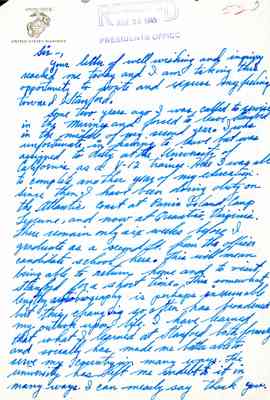 UNITED STATES MARINES
PRESIDENTS OFFICE
Sir -,
Your letter of well wishing and inquiry
reached me today and I am taking this
opportunity to write and express my feeling
toward Stanford.
Some two years ago I was called to service
in the Marines and forced to leave Stanford
in the middle of my second year. I was
unfortunate in having to leave but was
assigned to duty at the University of
California as a V-12 trainee. Was I was able
to complete another year of my education.
Since then I have been doing duty on
the Atlantic Coast at Parris Island, Camp
Lejeune, and now at Quantico, Virginia.
There remain only six weeks before I
graduate as a Second Lt. from the officer
candidate school here. This will mean
being able to return home and to visit
Stanford for a short time. This somewhat
lengthy autobiography is perhaps inexcusable
but this changing so often has
my outlook upon life. I have learned
that what I learned at Stanford both
and socially has made me better able to
serve my country in many ways. The
university has left me indebted to it in
many ways. I can merely say Thank you.